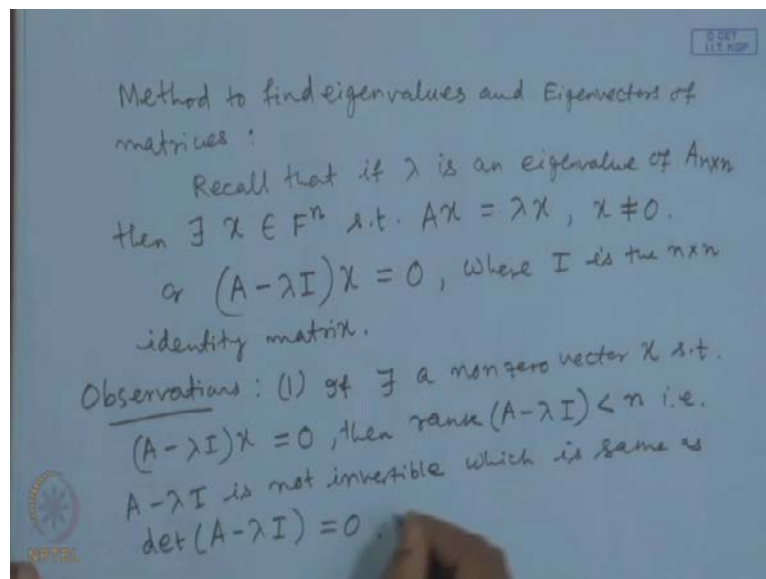 © CET
I.I.T. KGP
Method to find eigenvalues and Eigenvectors of
matrices :
Recall that if λ is an eigenvalue of Anxn
then ∃ x ∈ Fⁿ s.t. Ax = λx, x ≠ 0.
or (A - λI)x = 0, where I is the nxn
identity matrix.
Observations : (1) If ∃ a nonzero vector x s.t.
(A - λI)x = 0, then rank (A - λI) < n i.e.
A - λI is not invertible which is same as
det (A - λI) = 0.
NPTEL